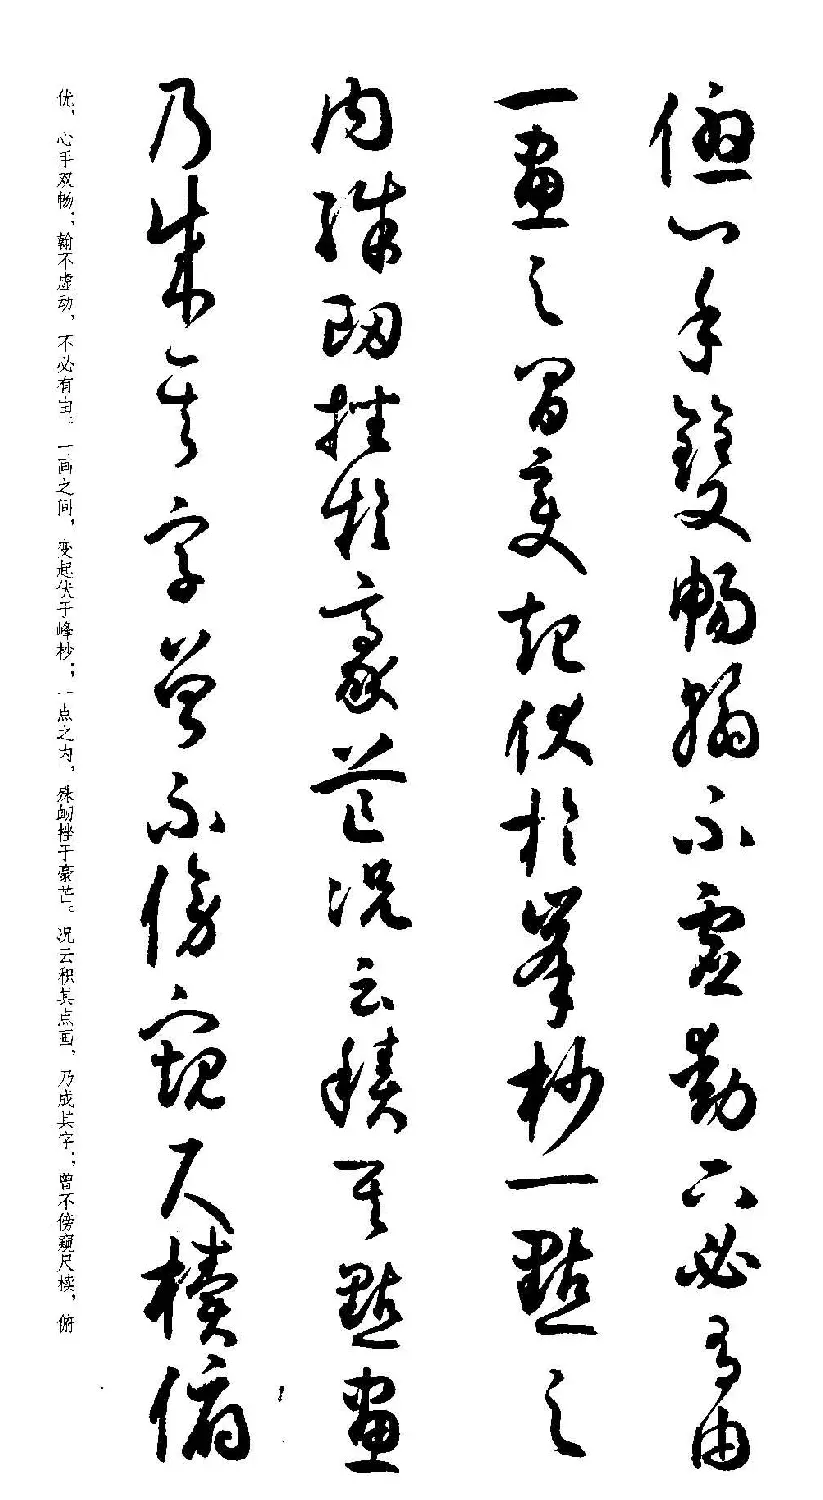 優心手雙暢翰不虛動下必有由
一畫之間變起伏於峯杪一點之
內殊衄挫於豪芒況云積其點畫
乃成其字曾不傍窺尺牘俯
优，心手双畅；翰不虚动，不必有由。一画之间，变起伏于峰杪；一点之内，殊衄挫于豪芒。况云积其点画，乃成其字；曾不傍窥尺椟，俯